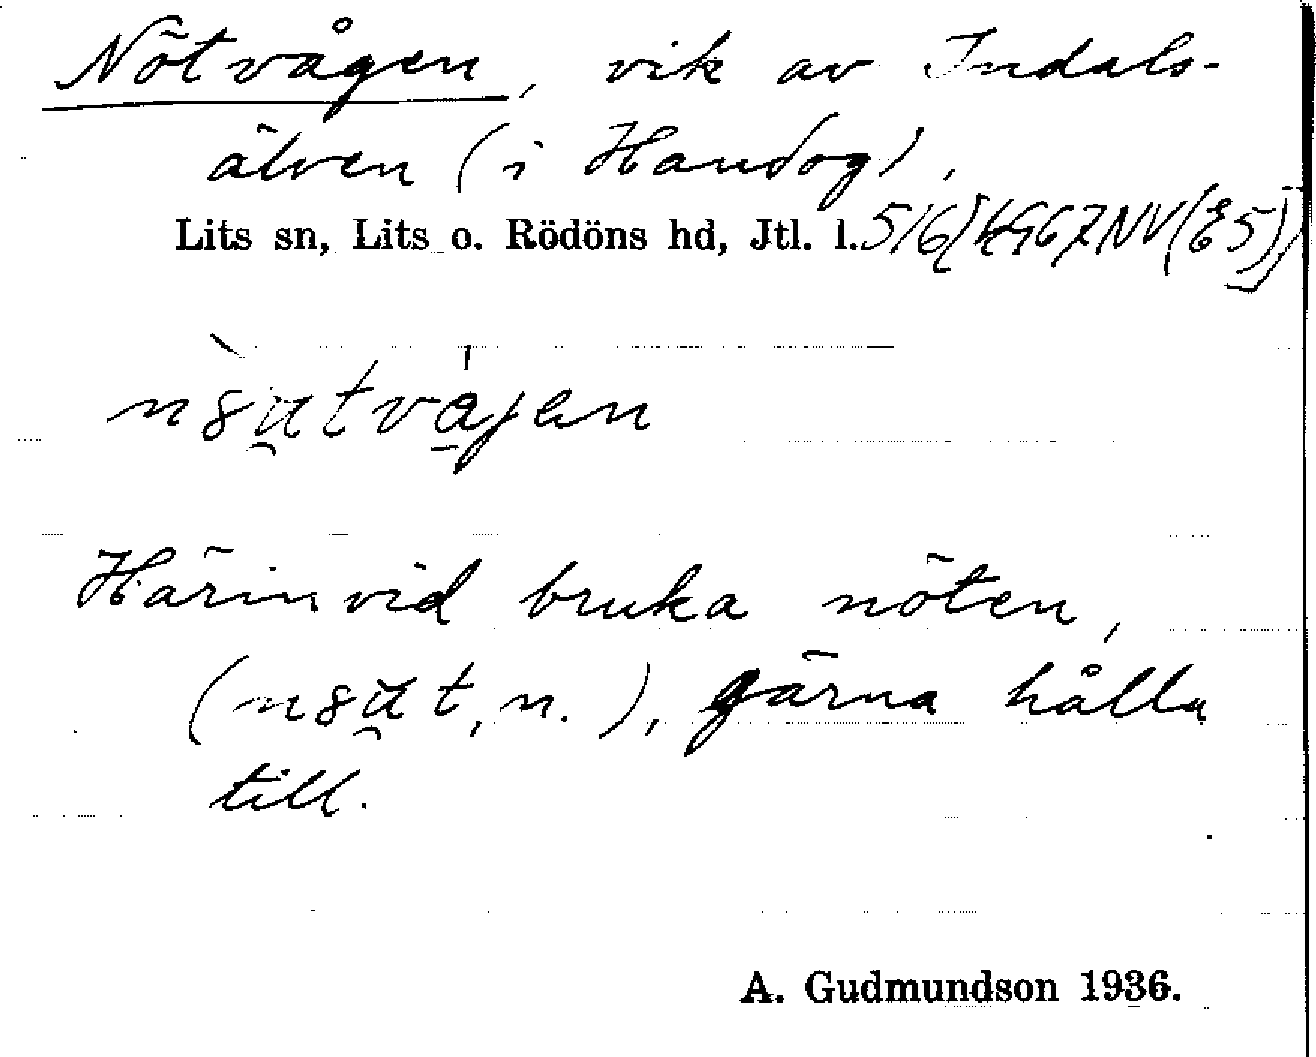 Nötvågen, vik av Indals-
älven (i Handog),
Lits sn, Lits o. Rödöns hd, Jtl. l.
Härinvid bruka nöten,
n.), gärna hålla
till.
A. Gudmundson 1936.